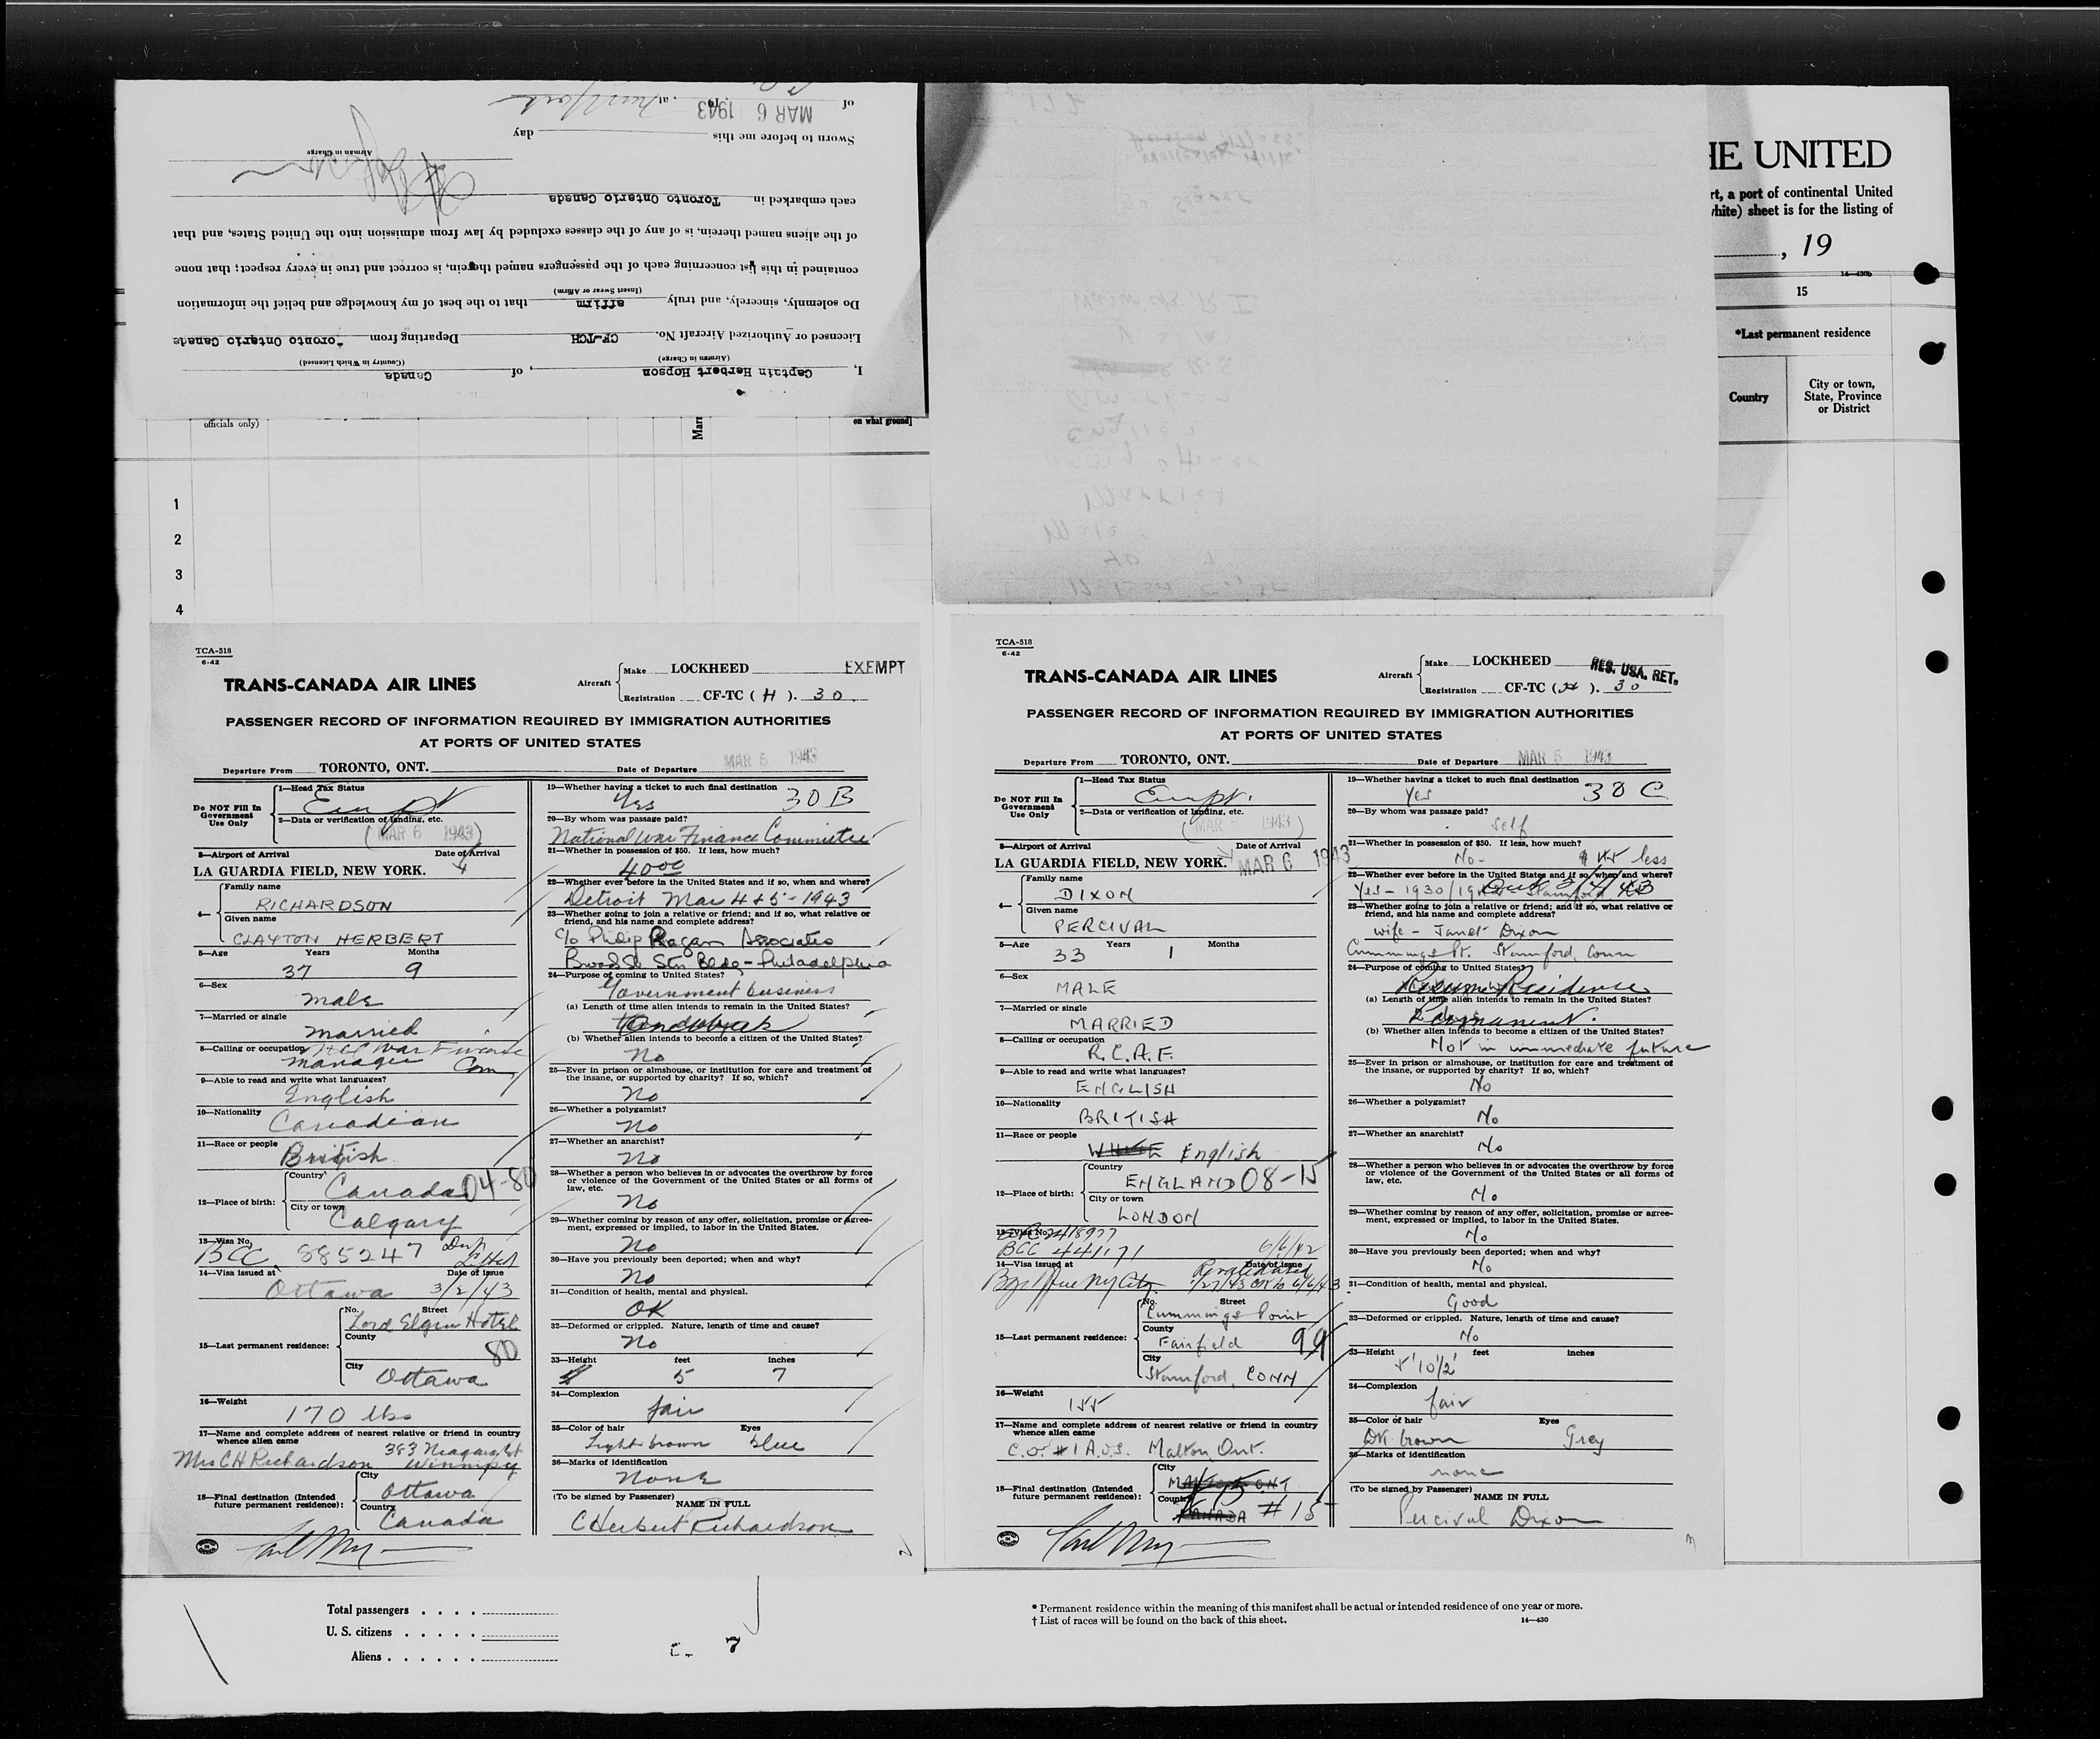 I, Captain Herbert Hopson, of Canada
(Airman in Charge) (Country in Which Licensed)
Licensed or Authorized Aircraft No. CF-TCH Departing from Toronto Ontario Canada
Do solemnly, sincerely, and truly affirm that to the best of my knowledge and belief the information
(Insert Swear or Affirm)
contained in this list concerning each of the passengers named therein, is correct and true in every respect; that none
of the aliens named therein, is of any of the classes excluded by law from admission into the United States, and that
each embarked in Toronto Ontario Canada
Airman in Charge
Sworn to before me this day
of MAR 6 1943 at New York
HE UNITED
rt, a port of continental United
white) sheet is for the listing of
, 19
14—430b
15
*Last permanent residence
Country
City or town,
State, Province
or District
officials only)
Marr
on what ground]
1
2
3
4
TCA-518
6-42
TRANS-CANADA AIR LINES
EXEMPT
Aircraft
Make LOCKHEED
Registration CF-TC ( H ). 30.
PASSENGER RECORD OF INFORMATION REQUIRED BY IMMIGRATION AUTHORITIES
AT PORTS OF UNITED STATES
Departure From TORONTO, ONT. Date of Departure MAR 6 1943
Do NOT Fill In
Government
Use Only
1—Head Tax Status
Exempt
2—Data or verification of landing, etc.
(MAR 6 1943)
3—Airport of Arrival Date of Arrival
LA GUARDIA FIELD, NEW YORK.
4—
Family name
RICHARDSON
Given name
CLAYTON HERBERT
5—Age Years Months
37 9
6—Sex
male
7—Married or single
married
8—Calling or occupation
manager
9—Able to read and write what languages?
English
10—Nationality
Canadian
11—Race or people
British
12—Place of birth:
Country
Canada 04-80
City or town
Calgary
13—Visa No.
BCC 885247
14—Visa issued at Date of issue
Ottawa 3/2/43
15—Last permanent residence:
No. Street
Lord Elgin Hotel
County
80
City
Ottawa
16—Weight
170 lbs
17—Name and complete address of nearest relative or friend in country
whence alien came
383 Niagara St
Mrs C H Richardson Winnipeg
18—Final destination (Intended
future permanent residence):
City
Ottawa
Country
Canada
19—Whether having a ticket to such final destination
Yes 30 B
20—By whom was passage paid?
National War Finance Committee
21—Whether in possession of $50. If less, how much?
40.00
22—Whether ever before in the United States and if so, when and where?
Detroit Mar 4 & 5 - 1943
23—Whether going to join a relative or friend; and if so, what relative or
friend, and his name and complete address?
c/o Philip Ragan Associates
Broad St Stn Bldg - Philadelphia
24—Purpose of coming to United States?
Government business
(a) Length of time alien intends to remain in the United States?
(b) Whether alien intends to become a citizen of the United States?
No
25—Ever in prison or almshouse, or institution for care and treatment of
the insane, or supported by charity? If so, which?
No
26—Whether a polygamist?
No
27—Whether an anarchist?
No
28—Whether a person who believes in or advocates the overthrow by force
or violence of the Government of the United States or all forms of
law, etc.
No
29—Whether coming by reason of any offer, solicitation, promise or agree-
ment, expressed or implied, to labor in the United States.
No
30—Have you previously been deported; when and why?
No
31—Condition of health, mental and physical.
OK
32—Deformed or crippled. Nature, length of time and cause?
No
33—Height feet inches
5 7
34—Complexion
fair
35—Color of hair Eyes
Light brown blue
36—Marks of identification
None
(To be signed by Passenger)
NAME IN FULL
C Herbert Richardson
TCA-518
6-42
TRANS-CANADA AIR LINES
Aircraft
Make LOCKHEED
RES. USA. RET.
Registration CF-TC (H). 30
PASSENGER RECORD OF INFORMATION REQUIRED BY IMMIGRATION AUTHORITIES
AT PORTS OF UNITED STATES
Departure From TORONTO, ONT. Date of Departure MAR 6 1943
Do NOT Fill In
Government
Use Only
1—Head Tax Status
Exempt.
2—Data or verification of landing, etc.
(MAR 6 1943)
3—Airport of Arrival Date of Arrival
LA GUARDIA FIELD, NEW YORK. MAR 6 1943
4—
Family name
DIXON
Given name
PERCIVAL
5—Age Years Months
33 1
6—Sex
MALE
7—Married or single
MARRIED
8—Calling or occupation
R.C.A.F.
9—Able to read and write what languages?
ENGLISH
10—Nationality
BRITISH
11—Race or people
WHITE English
12—Place of birth:
Country
ENGLAND 08-15
City or town
LONDON
13—Visa No.
BCC 441171 6/6/42
14—Visa issued at Date of issue
Revalidated
15—Last permanent residence:
No. Street
Cummings Point
County
Fairfield 99
City
Stamford, CONN
16—Weight
155
17—Name and complete address of nearest relative or friend in country
whence alien came
C.O. #1 A.O.S. Malton, Ont.
18—Final destination (Intended
future permanent residence):
City
MALTON ONT
Country
CANADA #15
19—Whether having a ticket to such final destination
Yes 30 C
20—By whom was passage paid?
Self
21—Whether in possession of $50. If less, how much?
No - less
22—Whether ever before in the United States and if so, when and where?
23—Whether going to join a relative or friend; and if so, what relative or
friend, and his name and complete address?
wife - Janet Dixon
Cummings Pt. Stamford, Conn
24—Purpose of coming to United States?
Resume Residence
(a) Length of time alien intends to remain in the United States?
Permanent.
(b) Whether alien intends to become a citizen of the United States?
Not in immediate future
25—Ever in prison or almshouse, or institution for care and treatment of
the insane, or supported by charity? If so, which?
No
26—Whether a polygamist?
No
27—Whether an anarchist?
No
28—Whether a person who believes in or advocates the overthrow by force
or violence of the Government of the United States or all forms of
law, etc.
No
29—Whether coming by reason of any offer, solicitation, promise or agree-
ment, expressed or implied, to labor in the United States.
No
30—Have you previously been deported; when and why?
No
31—Condition of health, mental and physical.
Good
32—Deformed or crippled. Nature, length of time and cause?
No
33—Height feet inches
5' 10 1/2"
34—Complexion
fair
35—Color of hair Eyes
Dk brown Grey
36—Marks of identification
none
(To be signed by Passenger)
NAME IN FULL
Percival Dixon
Total passengers
U. S. citizens
Aliens
7
* Permanent residence within the meaning of this manifest shall be actual or intended residence of one year or more.
† List of races will be found on the back of this sheet. 14—430